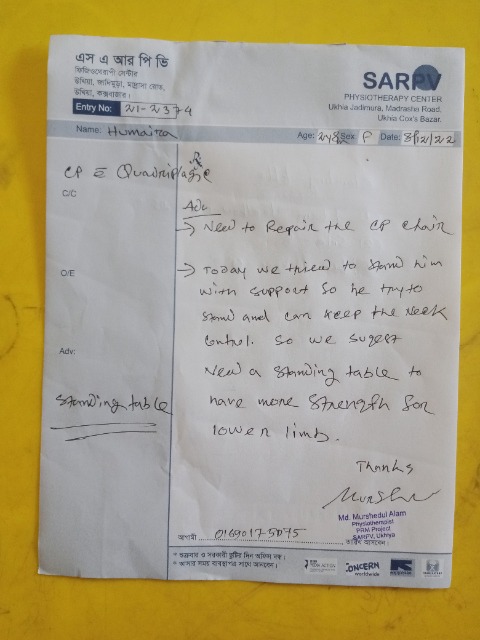 এস এ আর পি ভি
ফিজিওথেরাপী সেন্টার
উখিয়া, জাদিমুড়া, মাদ্রাসা রোড,
উখিয়া, কক্সবাজার।
Entry No: 21-2374
SARPV
PHYSIOTHERAPY CENTER
Ukhia Jadimura, Madrasha Road,
Ukhia Cox's Bazar.
Name: Humaira
Age: 2 Sex F Date: 8/12/22
CP Quadriplagic
C/C
Adv
→ Need to Repair the CP chair
O/E
→ Today we thried to stand him
with support so he try to
stand and can keep the neek
control. so we sugest
Adv:
Need a standing table to
standing table
have more strength for
lower limb.
Thanks
Md. Murshedul Alam
Physiotherapist
PRM Project
SARPV, Ukhiya
আগামী 0169017-5075 তারিখ আসবেন।
* শুক্রবার ও সরকারী ছুটির দিন অফিস বন্ধ।
* আসার সময় ব্যবস্থাপত্র সাথে আনবেন।
CONCERN
worldwide